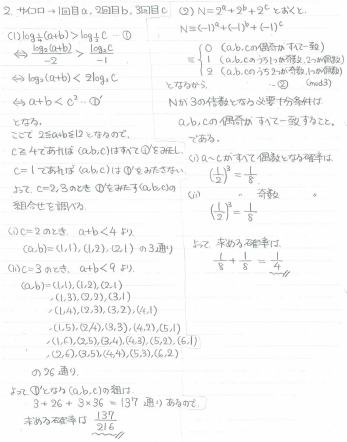 2. サイコロ→1回目a, 2回目b, 3回目c
(1) log_{1/4}(a+b) > log_{1/2} c …①
⇔ log₂(a+b)/-2 > log₂c/-1
⇔ log₂(a+b) < 2log₂c
⇔ a+b < c² …①'
となる。
ここで 2≦a+b≦12となるので、
c≧4であれば(a,b,c)はすべて①'をみたし、
c=1であれば(a,b,c)は①'をみたさない
よって、c=2,3のとき①'をみたす(a,b,c)の
組合せを調べる.
(i) c=2のとき, a+b<4 より.
(a,b)=(1,1),(1,2),(2,1) の3通り
(ii) c=3のとき, a+b<9 より.
(a,b)=(1,1),(1,2),(2,1)
,(1,3),(2,2),(3,1)
,(1,4),(2,3),(3,2),(4,1)
,(1,5),(2,4),(3,3),(4,2),(5,1)
,(1,6),(2,5),(3,4),(4,3),(5,2),(6,1)
,(2,6),(3,5),(4,4),(5,3),(6,2)
の26通り.
よって①'となる(a,b,c)の組は.
3+26+3×36=137 通りあるので.
求める確率は 137/216
(2) N=2^a+2^b+2^c とおくと.
N≡(-1)^a+(-1)^b+(-1)^c
≡ { 0 (a,b,cの偶奇がすべて一致)
1 (a,b,cのうち1つが奇数, 2つが偶数)
2 (a,b,cのうち2つが奇数, 1つが偶数)
となるから. …② (mod3)
Nが3の倍数となる必要十分条件は
a,b,cの偶奇がすべて一致すること。
である。
(i) a~cがすべて偶数となる確率は.
(1/2)³=1/8.
(ii) 〃 奇数 〃
(1/2)³=1/8
よって 求める確率は.
1/8+1/8=1/4